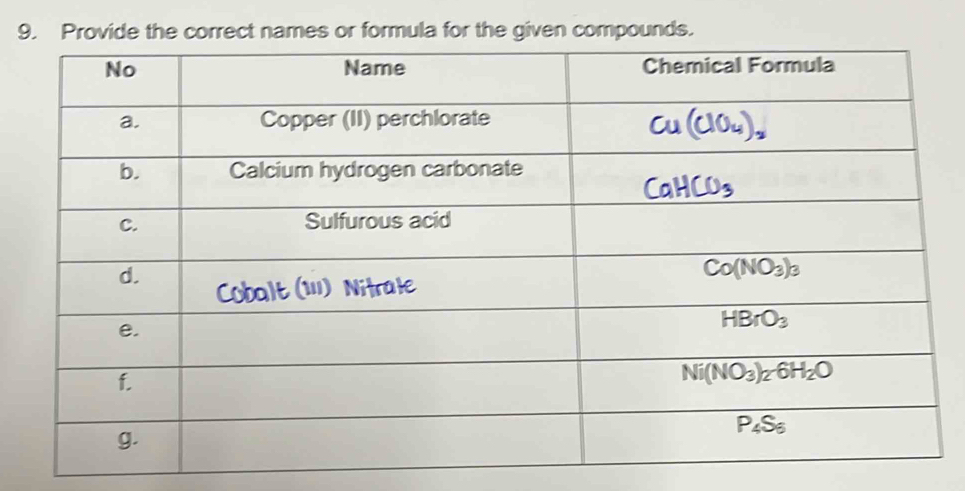 9. Provide the correct names or formula for the given compounds.
No Name Chemical Formula
a. Copper (II) perchlorate Cu(ClO₄)₂
b. Calcium hydrogen carbonate CaHCO₃
c. Sulfurous acid
d. Cobalt (III) Nitrate Co(NO₃)₃
e. HBrO₃
f. Ni(NO₃)₂·6H₂O
g. P₄S₆